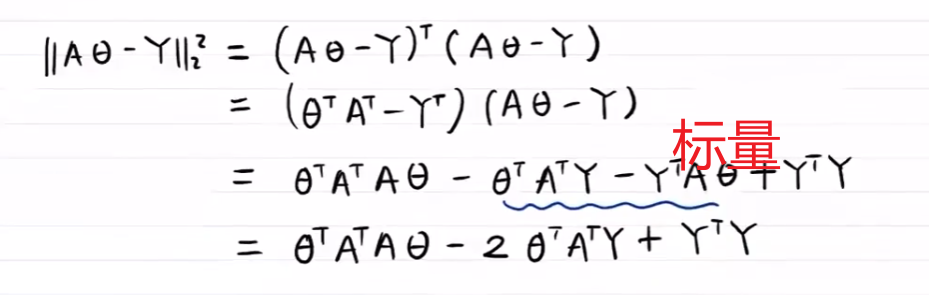 ||Aθ - Y||₂² = (Aθ - Y)ᵀ (Aθ - Y)
= (θᵀAᵀ - Yᵀ) (Aθ - Y)
标量
= θᵀAᵀAθ - θᵀAᵀY - YᵀAθ + YᵀY
= θᵀAᵀAθ - 2θᵀAᵀY + YᵀY